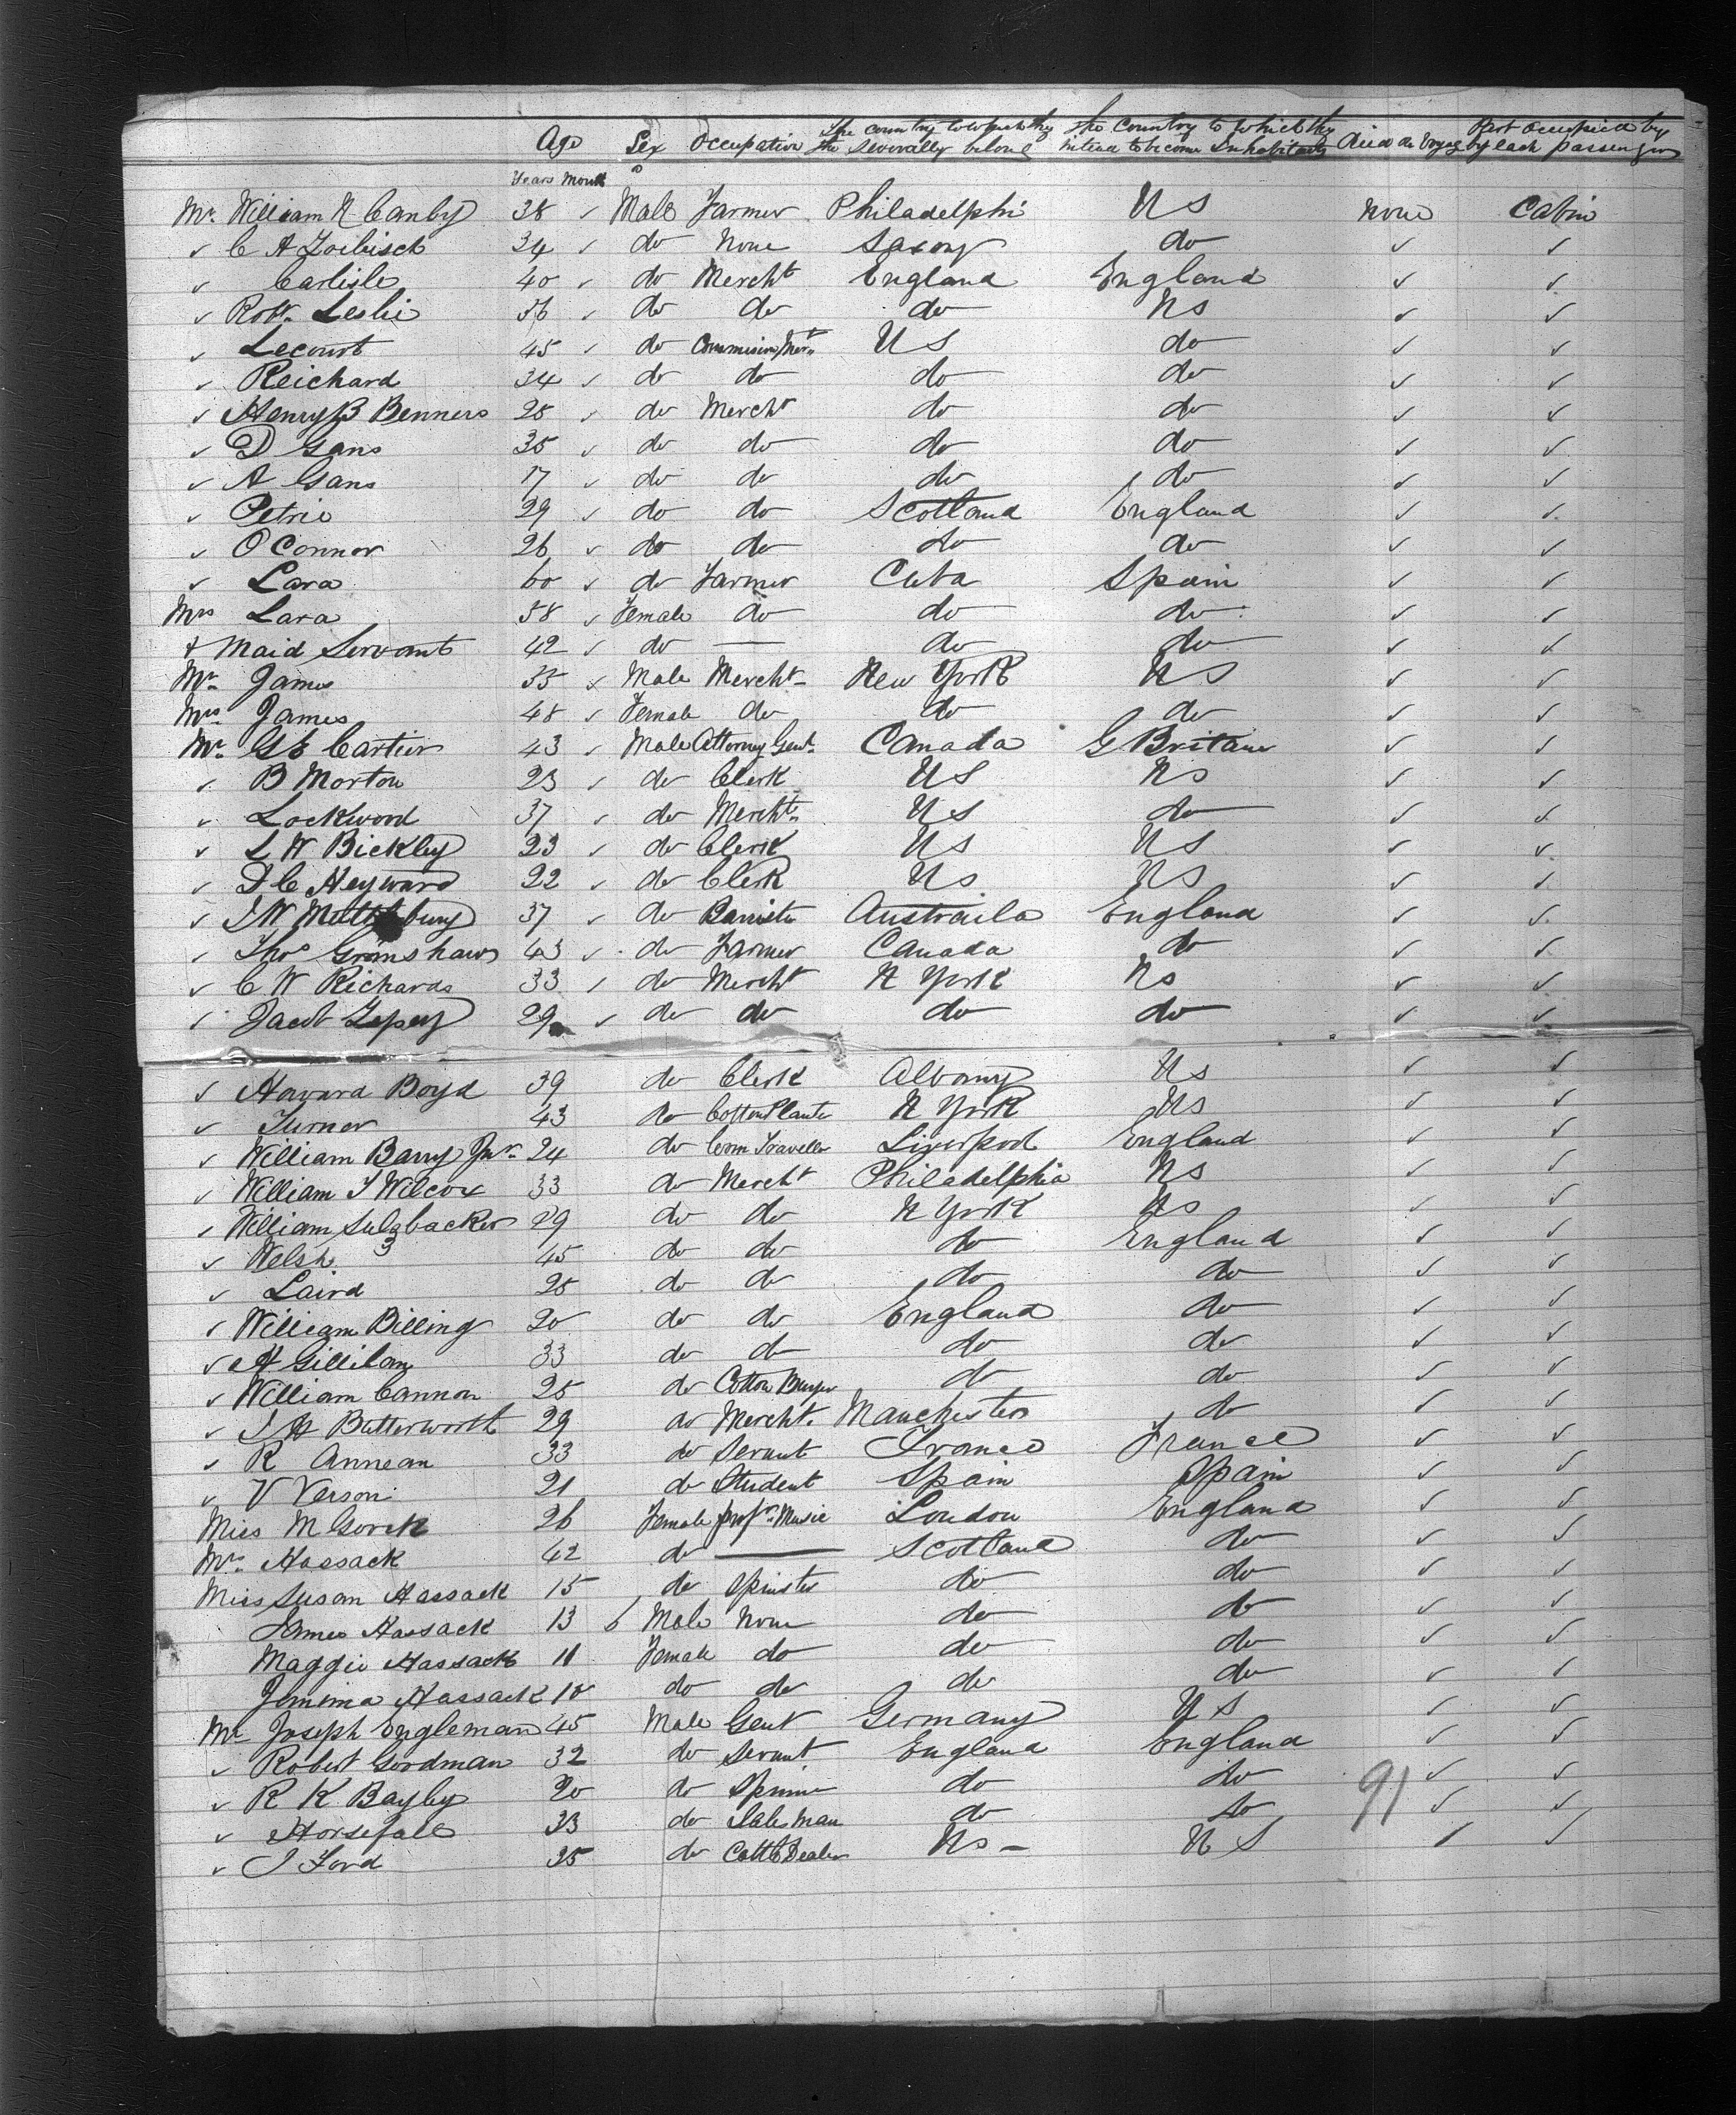 Age Sex Occupation The country to which they severally belong The Country to which they intend to become Inhabitants Died on Voyage Part occupied by each passenger
Years Month
Mr. William N Canby 38 ✓ Male Farmer Philadelphi US None Cabin
✓ C A Zoebisch 34 ✓ do None Saxony do ✓ ✓
✓ Carlisle 40 ✓ do Mercht England England ✓ ✓
✓ Robt. Leslie 36 ✓ do do do US ✓ ✓
✓ Lecourt 45 ✓ do Commision Mert US do ✓ ✓
✓ Reichard 34 ✓ do do do do ✓ ✓
✓ Henry B Benners 28 ✓ do Mercht do do ✓ ✓
✓ D Gans 35 ✓ do do do do ✓ ✓
✓ A Gans 17 ✓ do do do do ✓ ✓
✓ Petrie 29 ✓ do do Scotland England ✓ ✓
✓ O'Connor 26 ✓ do do do do ✓ ✓
✓ Lara 60 ✓ do Farmer Cuba Spain ✓ ✓
Mrs Lara 58 ✓ Female do do do ✓ ✓
+ Maid Servant 42 ✓ do — do do ✓ ✓
Mr. James 55 ✓ Male Mercht New York US ✓ ✓
Mrs James 48 ✓ Female do do do ✓ ✓
Mr. G E Cartier 43 ✓ Male Attorney Genl. Canada G Britain ✓ ✓
✓ B Morton 23 ✓ do Clerk US US ✓ ✓
✓ Lockwood 37 ✓ do Mercht. US do ✓ ✓
✓ L W Bickley 23 ✓ do Clerk US US ✓ ✓
✓ D C Heyward 22 ✓ do Clerk US US ✓ ✓
✓ 37 ✓ do Barrister Austraila England ✓ ✓
✓ Thos Grimshaw 43 ✓ do Farmer Canada do ✓ ✓
✓ C W Richards 33 ✓ do Mercht N York US ✓ ✓
✓ Jacob 29 ✓ do do do do ✓ ✓
✓ Howard Boyd 39 do Clerk Albany US ✓ ✓
✓ Turner 43 do Cotton Planter N York US ✓ ✓
✓ William Barry Jnr. 24 do Com Traveller Liverpool England ✓ ✓
✓ William T Wilcox 33 do Mercht Philadelphia US ✓ ✓
✓ William Sulzbacker 29 do do N York US ✓ ✓
✓ Welsh 45 do do do England ✓ ✓
✓ Laird 28 do do do do ✓ ✓
✓ William Billing 20 do do England do ✓ ✓
✓ H Gillilan 33 do do do do ✓ ✓
✓ William Cannon 25 do Cotton Buyer do do ✓ ✓
✓ J H Butterworth 29 do Mercht. Manchester do ✓ ✓
✓ R Annean 33 do Servant France France ✓ ✓
✓ V Verson 21 do Student Spain Spain ✓ ✓
Miss M 26 Female profr. Music London England ✓ ✓
Mrs Hossack 42 do — Scotland do ✓ ✓
Miss Susan Hossack 15 do Spinster do do ✓ ✓
James Hossack 13 6 Male None do do ✓ ✓
Maggie Hossack 11 Female do do do ✓ ✓
Jemima Hossack 10 do do do do ✓ ✓
Mr Joseph Engleman 45 Male Gent Germany US ✓ ✓
✓ Robert Goodman 32 do Servant England England ✓ ✓
✓ R K Bayley 20 do do do 91 ✓ ✓
✓ Horsefall 33 do Salesman do do ✓ ✓
✓ J Ford 35 do Dealer US - US ✓ ✓